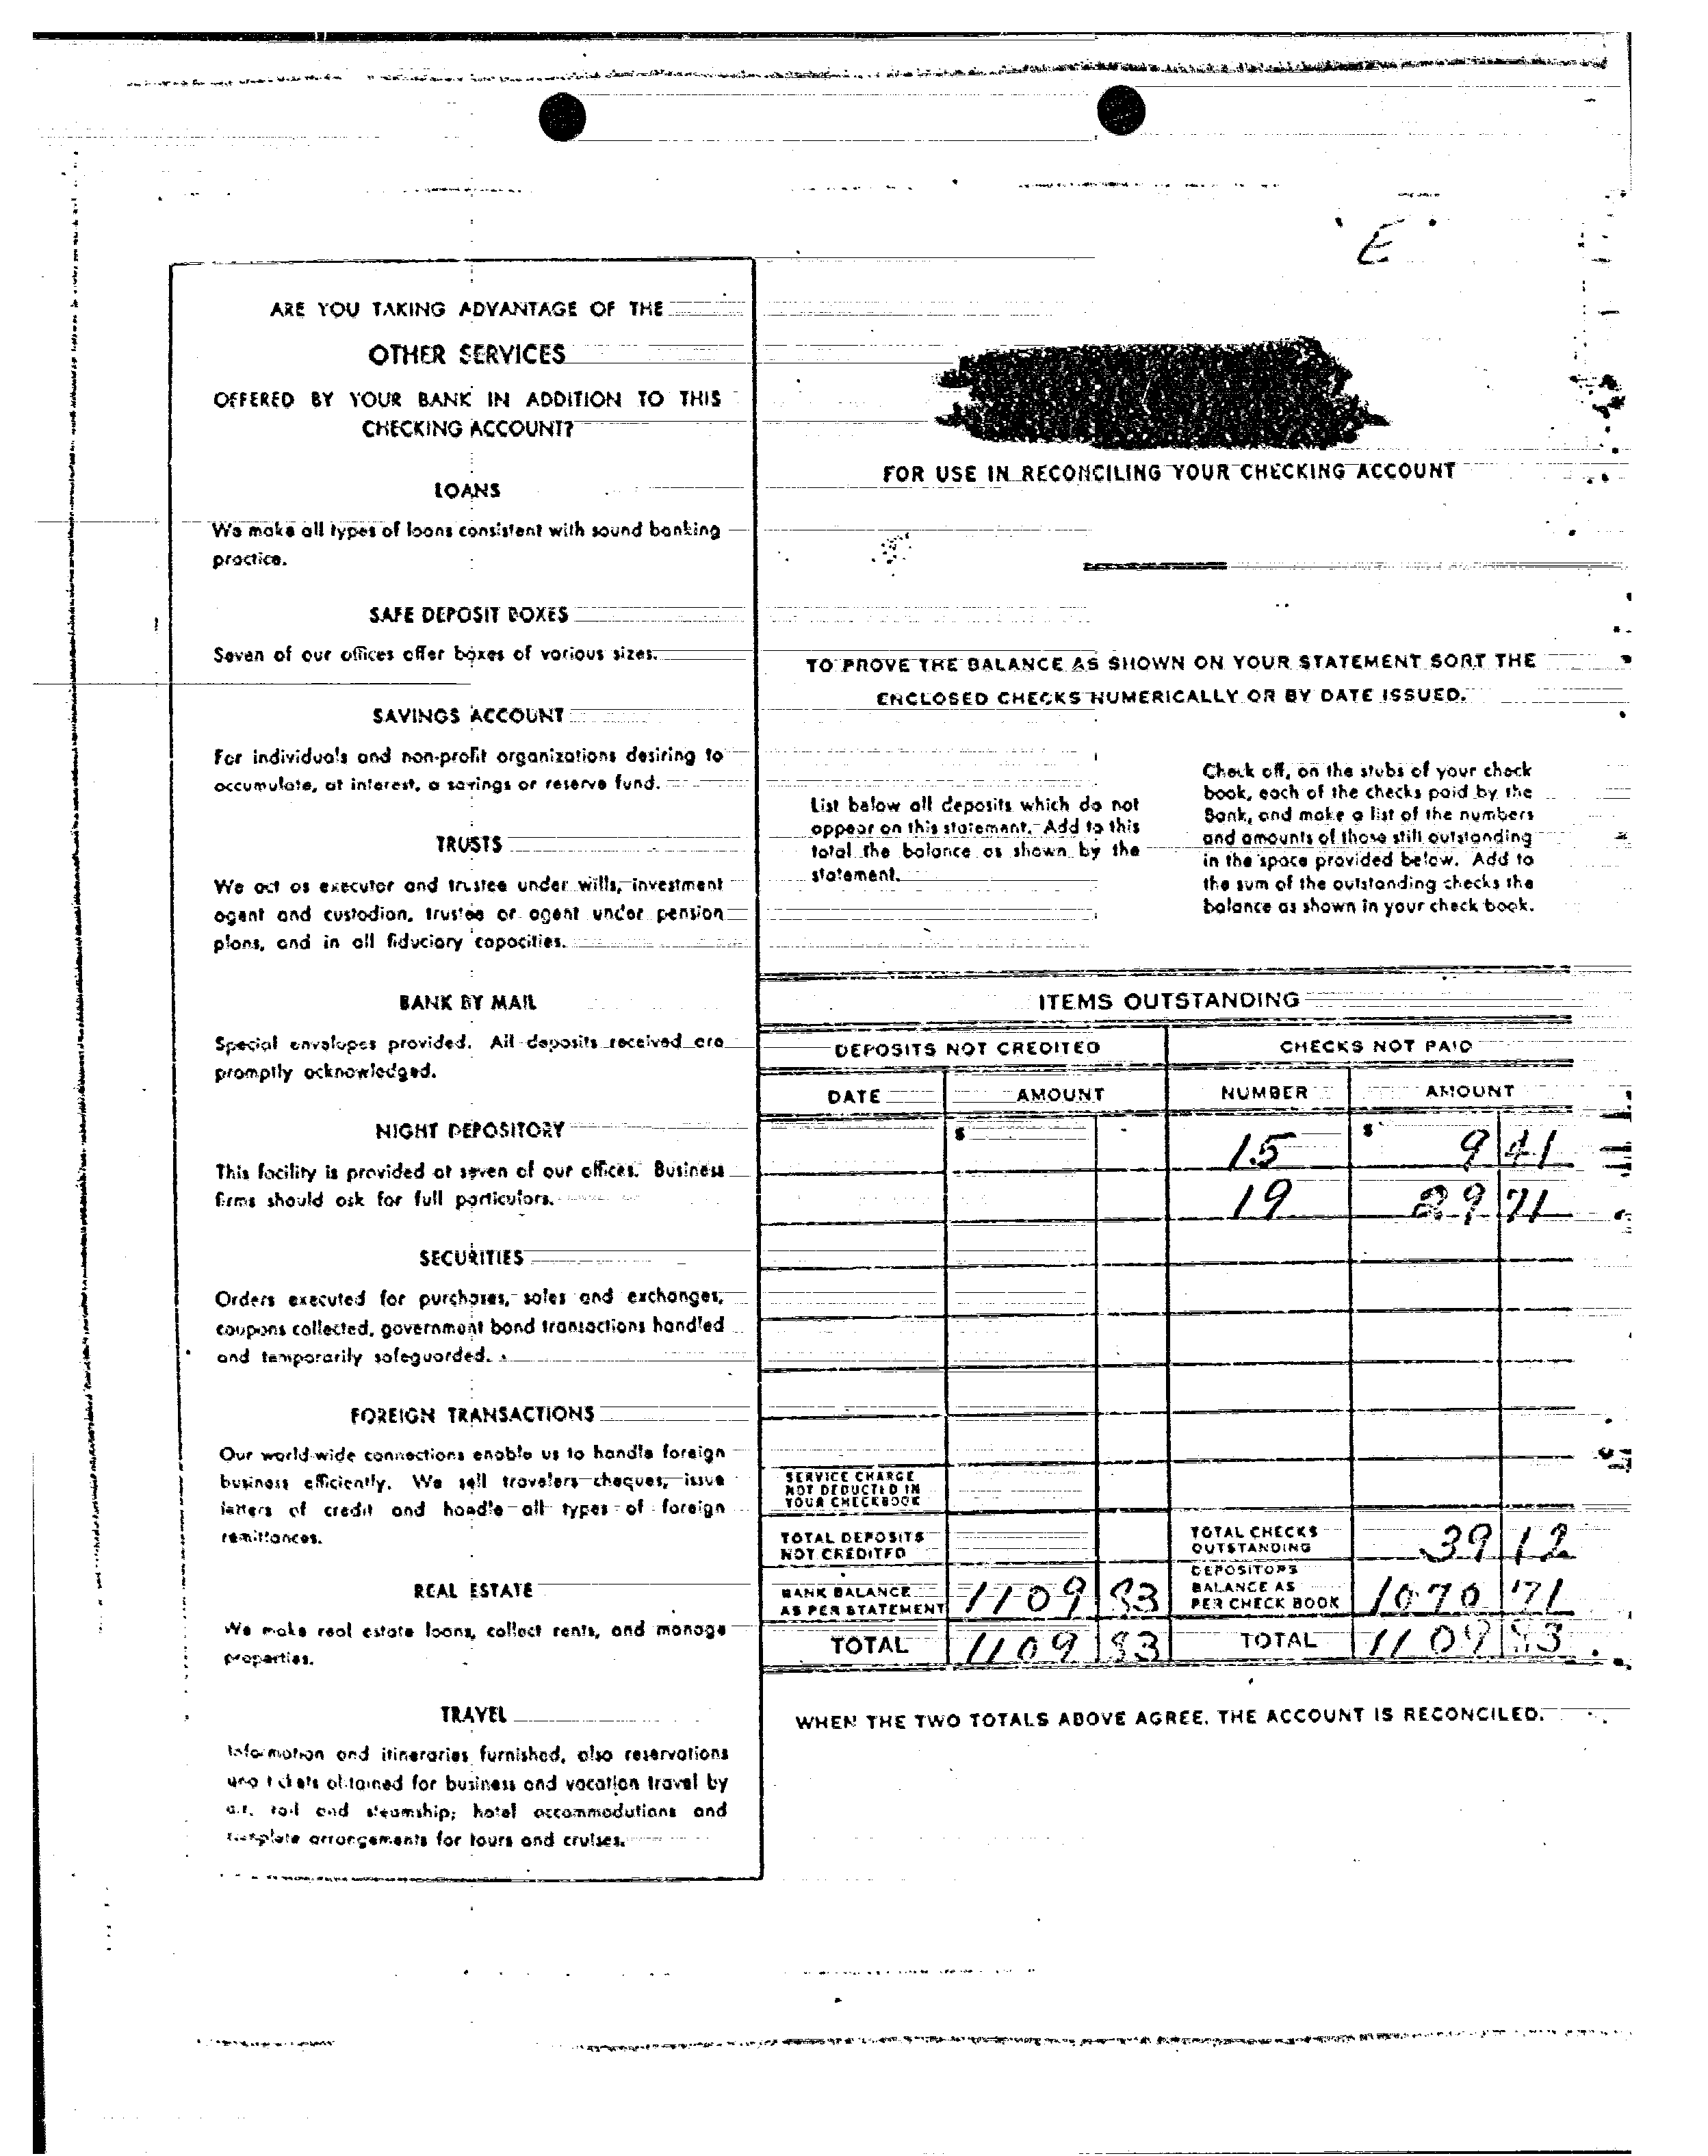 E
ARE YOU TAKING ADVANTAGE OF THE
OTHER SERVICES
OFFERED BY YOUR BANK IN ADDITION TO THIS
CHECKING ACCOUNT?
LOANS
We make all types of loans consistent with sound banking
practice.
SAFE DEPOSIT BOXES
Seven of our offices offer boxes of various sizes.
SAVINGS ACCOUNT
For individuals and non-profit organizations desiring to
accumulate, at interest, a savings or reserve fund.
TRUSTS
We act as executor and trustee under wills, investment
agent and custodian, trustee or agent under pension
plans, and in all fiduciary capacities.
BANK BY MAIL
Special envelopes provided. All deposits received are
promptly acknowledged.
NIGHT DEPOSITORY
This facility is provided at seven of our offices. Business
firms should ask for full particulars.
SECURITIES
Orders executed for purchases, sales and exchanges,
coupons collected, government bond transactions handled
and temporarily safeguarded.
FOREIGN TRANSACTIONS
Our world-wide connections enable us to handle foreign
business efficiently. We sell travelers cheques, issue
letters of credit and handle all types of foreign
remittances.
REAL ESTATE
We make real estate loans, collect rents, and manage
properties.
TRAVEL
Information and itineraries furnished, also reservations
and tickets obtained for business and vacation travel by
air, rail and steamship; hotel accommodations and
complete arrangements for tours and cruises.
FOR USE IN RECONCILING YOUR CHECKING ACCOUNT
TO PROVE THE BALANCE AS SHOWN ON YOUR STATEMENT SORT THE
ENCLOSED CHECKS NUMERICALLY OR BY DATE ISSUED.
List below all deposits which do not
appear on this statement. Add to this
total the balance as shown by the
statement.
Check off, on the stubs of your check
book, each of the checks paid by the
Bank, and make a list of the numbers
and amounts of those still outstanding
in the space provided below. Add to
the sum of the outstanding checks the
balance as shown in your check book.
ITEMS OUTSTANDING
DEPOSITS NOT CREDITED CHECKS NOT PAID
DATE AMOUNT NUMBER AMOUNT
$ 15 $ 9 41
19 29 71
SERVICE CHARGE
NOT DEDUCTED IN
YOUR CHECKBOOK
TOTAL DEPOSITS
NOT CREDITED
TOTAL CHECKS
OUTSTANDING 39 12
BANK BALANCE
AS PER STATEMENT 1109 83
DEPOSITORS
BALANCE AS
PER CHECK BOOK 1070 71
TOTAL 1109 83 TOTAL 1109 83
WHEN THE TWO TOTALS ABOVE AGREE, THE ACCOUNT IS RECONCILED.